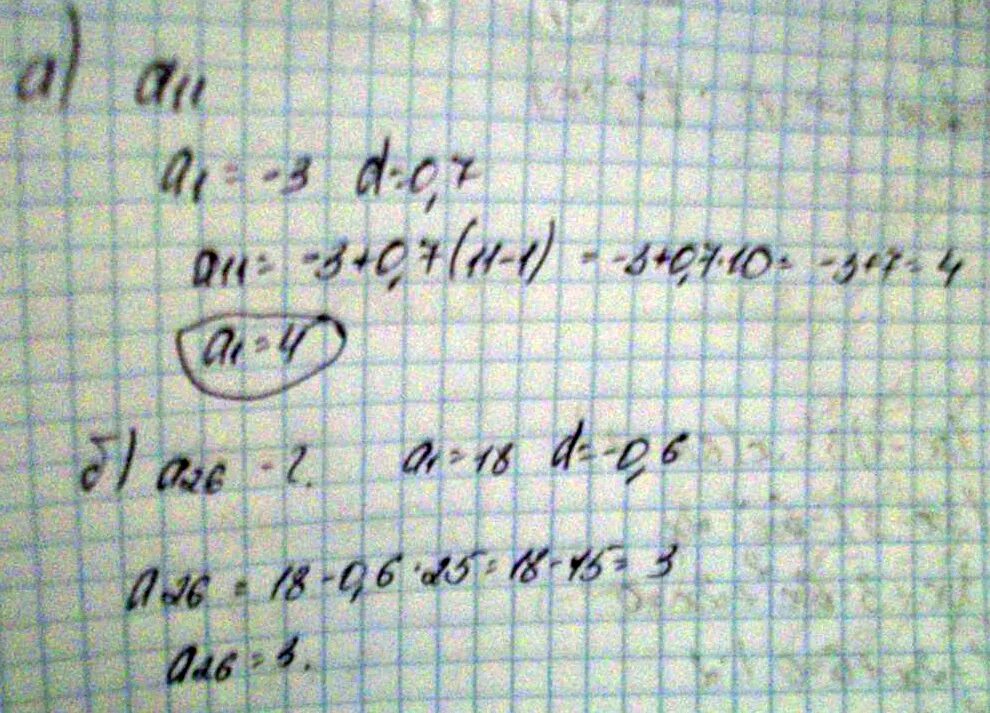 а) a11
a1 = -3 d=0,7
a11 = -3+0,7(11-1) = -3+0,7·10= -3+7= 4
a1=4
б) a26 - ?. a1=18 d=-0,6
a26 = 18-0,6·25=18-15= 3
a26=3.